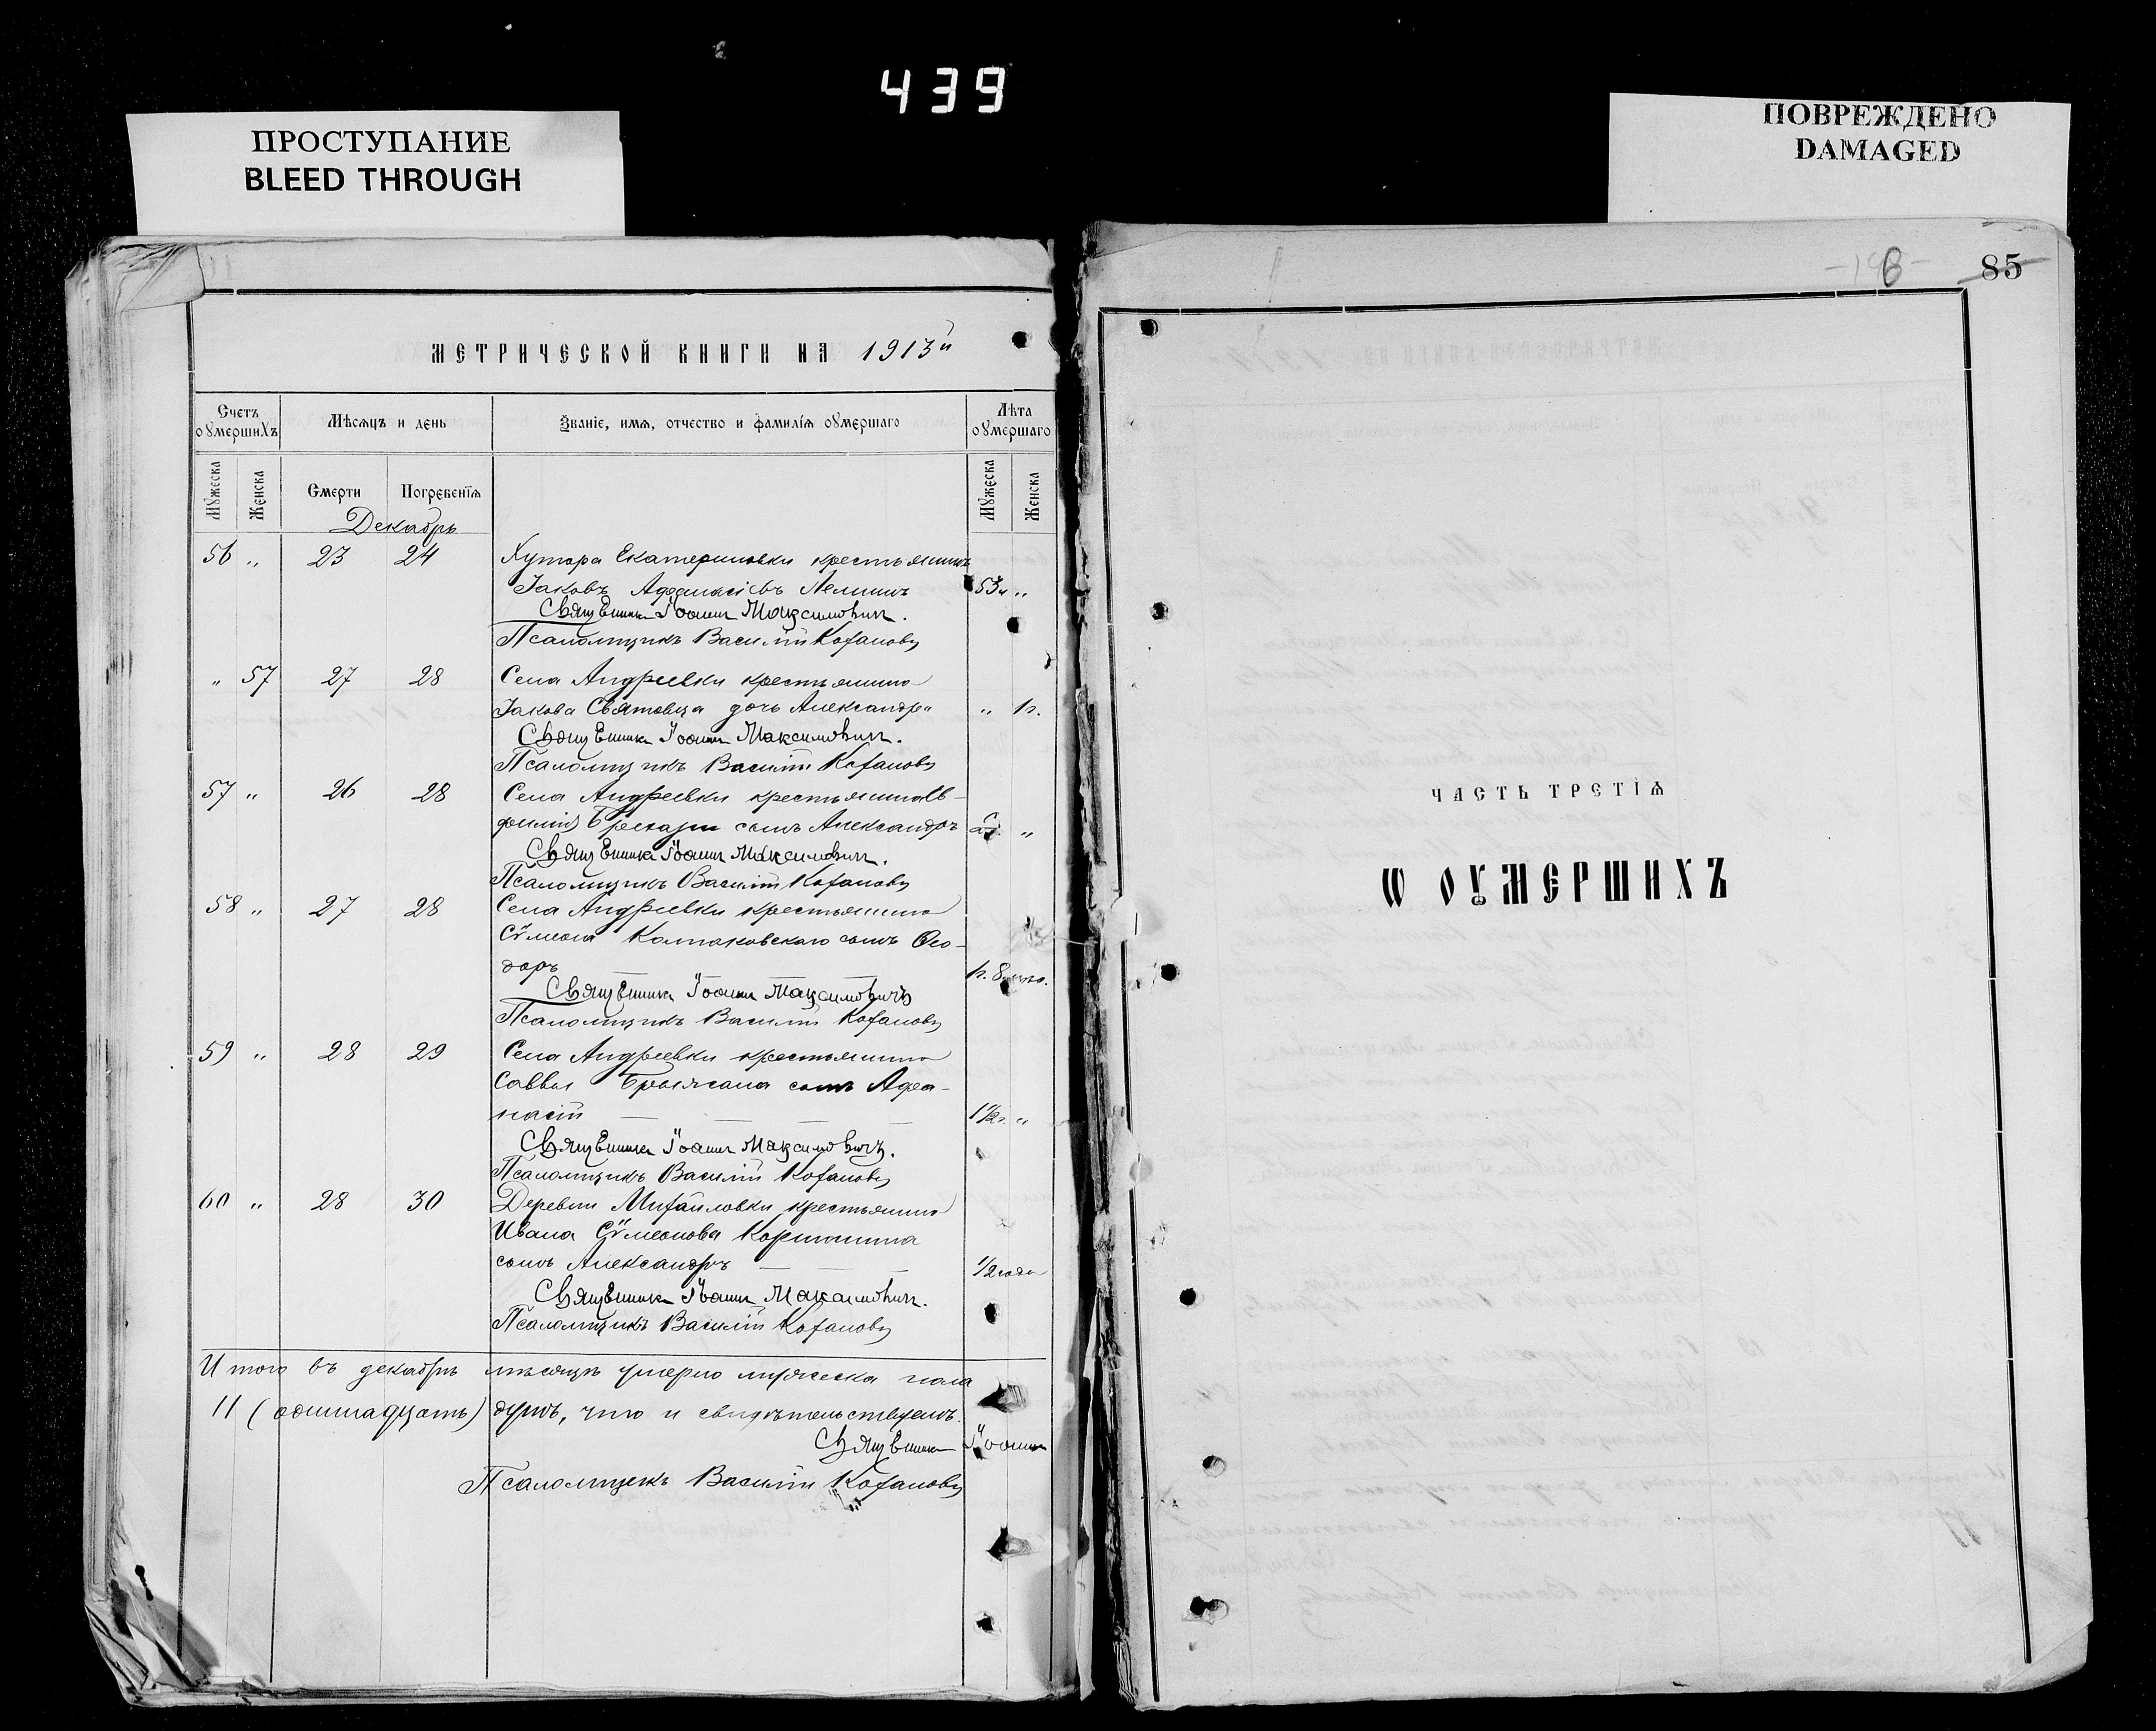 439
ПРОСТУПАНИЕ
BLEED THROUGH
ПОВРЕЖДЕНО
DAMAGED
МЕТРИЧЕСКОЙ КНИГИ НА 1913й
Счетъ оумершихъ
Мѣсяцъ и день
Званіе, имя, отчество и фамилія оумершаго
Лѣта оумершаго
Мужеска
Женска
Смерти
Погребенія
Мужеска
Женска
Декабрь
56 „ 23 24 Хутора Екатериновки крестьянинъ
Іаковъ Афанасіевъ 53 „
Священникъ Іоаннъ Максимовичъ.
Псаломщикъ Василій
„ 57 27 28 Села Андреевки крестьянина
Іакова Святовца дочь Александра „ 1г.
Священникъ Іоаннъ Максимовичъ.
Псаломщикъ Василій
57 „ 26 28 Села Андреевки крестьянина Ев-
фимія сынъ Александръ „
Священникъ Іоаннъ Максимовичъ.
Псаломщикъ Василій
58 „ 27 28 Села Андреевки крестьянина
Сѵмеона Колпаковскаго сынъ Ѳео-
доръ
Священникъ Іоаннъ Максимовичъ
Псаломщикъ Василій
59 „ 28 29 Села Андреевки крестьянина
Саввы сынъ Афа-
насій 1½г. „
Священникъ Іоаннъ Максимовичъ.
Псаломщикъ Василій
60 „ 28 30 Деревни Михайловки крестьянина
Ивана Сѵмеонова
сынъ Александръ ½ года
Священникъ Іоаннъ Максимовичъ.
Псаломщикъ Василій
Итого въ декабрѣ мѣсяцѣ умерло мужеска пола
11 (одиннадцать) душъ, что и свидѣтельствуемъ.
Священникъ Іоаннъ
Псаломщикъ Василій
85
ЧАСТЬ ТРЕТІЯ
Ѡ ОУМЕРШИХЪ